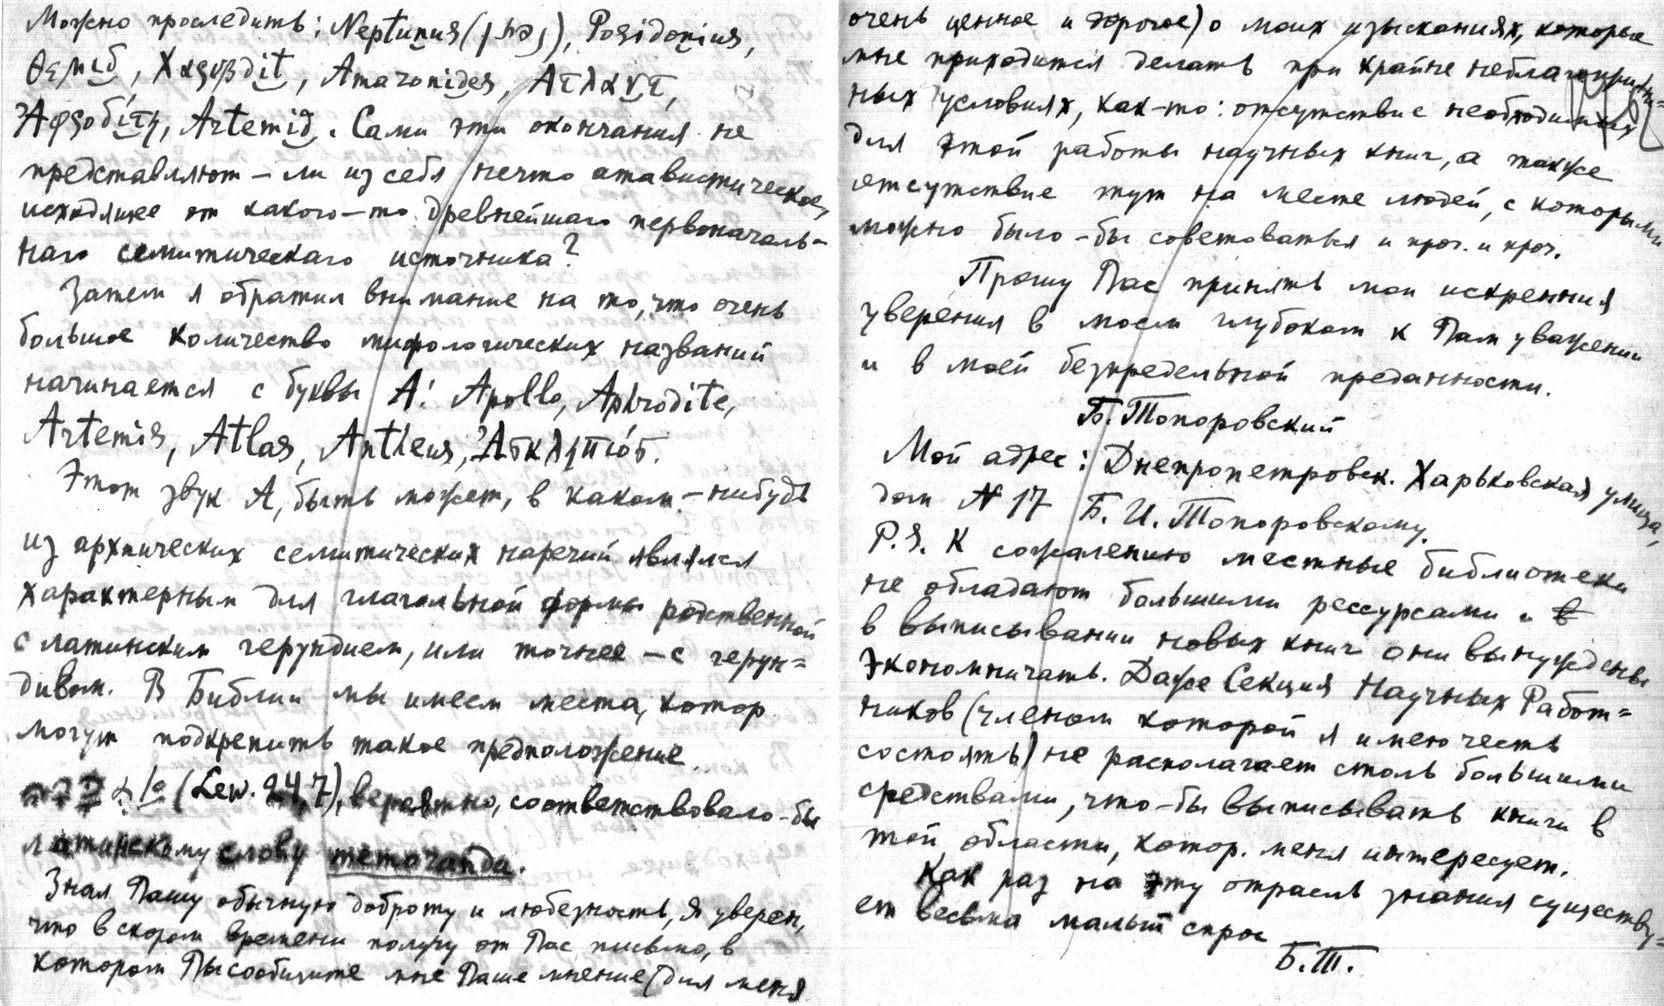 Можно проследить: Neptunus (נפת), Posidonius,
Θεμιδ, Χαρυβdit, Amazonides, Ατλαντ,
Ἀφροδίτη, Artemid. Сами эти окончания не
представляют-ли из себя нечто атавистическое,
исходящее от какого-то древнейшаго первоначаль-
наго семитическаго источника?
Затем я обратил внимание на то, что очень
большое количество мифологических названий
начинается с буквы А: Apollo, Aphrodite,
Artemis, Atlas, Antheus, Ἀσκληπιός.
Этот звук А, быть может, в каком-нибудь
из архаических семитических наречий являлся
характерным для глагольной формы родственной
с латинским герундием, или точнее - с герун=
дивом. В Библии мы имеем места, котор.
могут подкрепить такое предположение.
(Lew. 24,7), вероятно, соответствовало-бы
латинскому слову memoranda.
Зная Вашу обычную доброту и любезность, я уверен,
что в скором времени получу от Вас письмо, в
котором Вы сообщите мне Ваше мнение (для меня
очень ценное и дорогое) о моих изысканиях, которые
мне приходится делать при крайне неблагоприят=
ных условиях, как-то: отсутствие необходимых
для этой работы научных книг, а также
отсутствие тут на месте людей, с которыми
можно было-бы советоваться и проч. и проч.
Прошу Вас принять мои искрення
уверения в моем глубоком к Вам уважении
и в моей безпредельной преданности.
Б. Топоровский
Мой адрес: Днепропетровск. Харьковская улица,
дом № 17 Б. И. Топоровскому.
P.S. К сожалению местные библиотеки
не обладают большими рессурсами и
в выписывании новых книг они вынуждены
экономничать. Даже Секция Научных Работ=
ников (членом которой я имею честь
состоять) не располагает столь большими
средствами, что-бы выписывать книги в
той области, котор. меня интересует.
Как раз на эту отрасль знания существу=
ет весьма малый спрос
Б.Т.